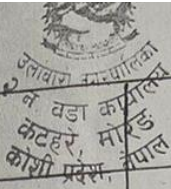 उर्लाबारी नगरपालिका
२ नं. वडा कार्यालय
कटहरे, मोरङ
कोशी प्रदेश, नेपाल